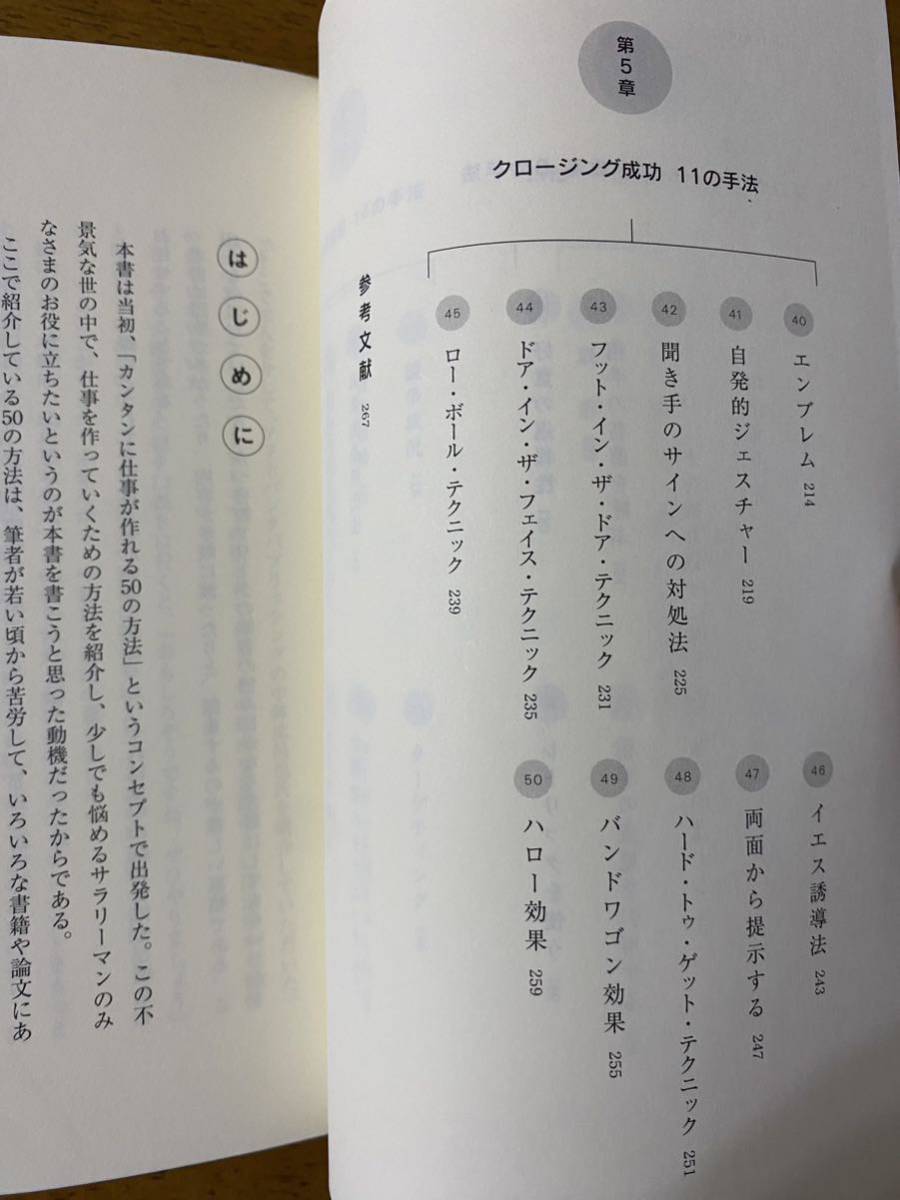 第5章
クロージング成功 11の手法
40 エンブレム 214
41 自発的ジェスチャー 219
42 聞き手のサインへの対処法 225
43 フット・イン・ザ・ドア・テクニック 231
44 ドア・イン・ザ・フェイス・テクニック 235
45 ロー・ボール・テクニック 239
46 イエス誘導法 243
47 両面から提示する 247
48 ハード・トゥ・ゲット・テクニック 251
49 バンドワゴン効果 255
50 ハロー効果 259
参考文献 267
はじめに
本書は当初、「カンタンに仕事が作れる50の方法」というコンセプトで出発した。この不
景気な世の中で、仕事を作っていくための方法を紹介し、少しでも悩めるサラリーマンのみ
なさまのお役に立ちたいというのが本書を書こうと思った動機だったからである。
ここで紹介している50の方法は、筆者が若い頃から苦労して、いろいろな書籍や論文にあ